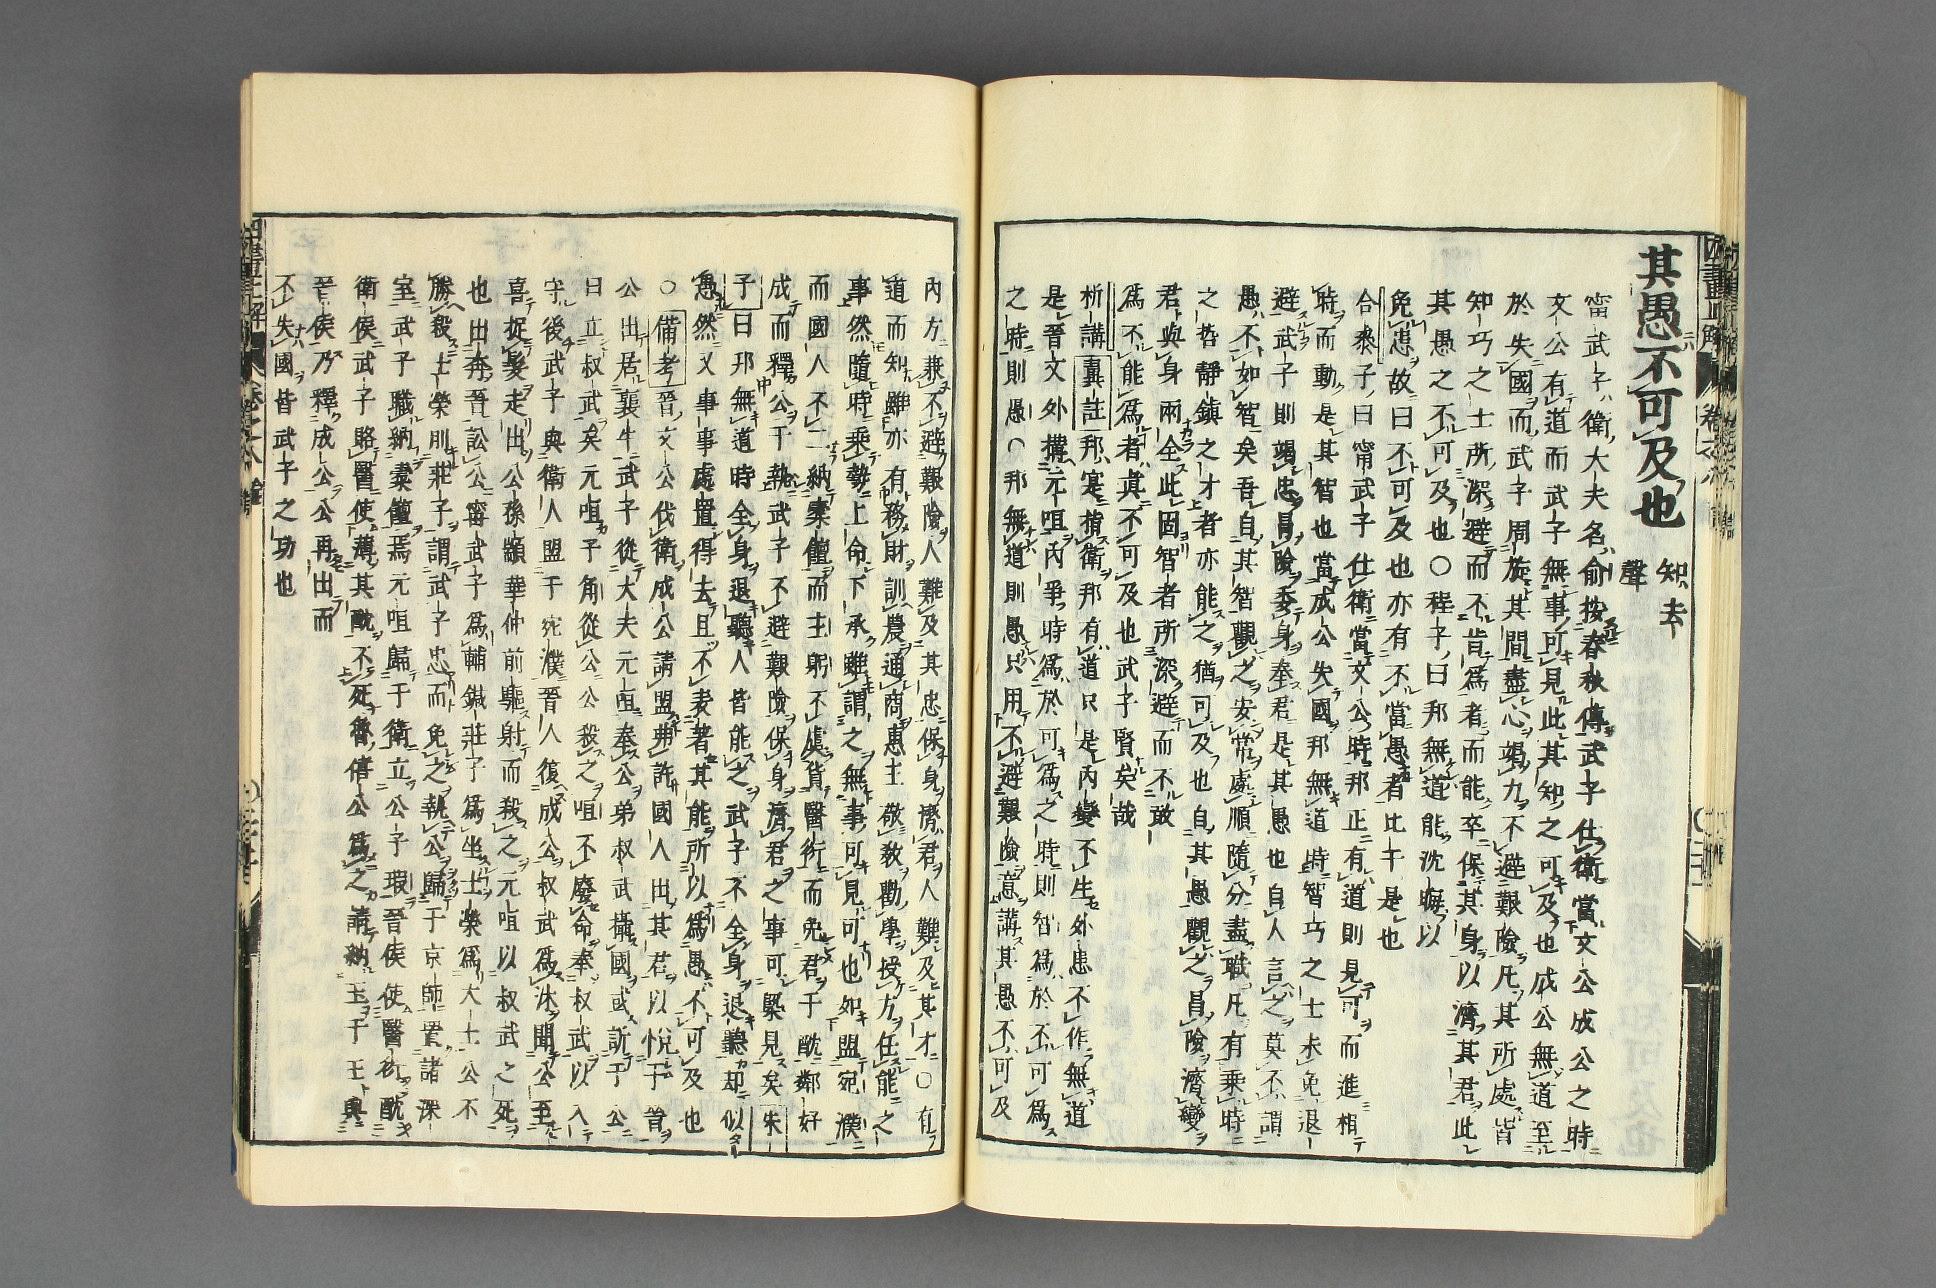 其愚不可及也 知去聲
甯武子衛大夫名俞按春秋傳武子仕衛當文公成公之時
文公有道而武子無事可見此其知之可及也成公無道至
於失國而武子周旋其間盡心竭力不避艱險凡其所處皆
知巧之士所深避而不肯爲者而能卒保其身以濟其君此
其愚之不可及也○程子曰邦無道能沈晦以
免患故曰不可及也亦有不當愚者比干是也
合參子曰甯武子仕衛當文公時邦正有道則見可而進相
時而動是其智也當成公失國邦無道時智巧之士未免退
避武子則竭忠冒險委身奉君是其愚也自人言之莫不謂
愚不如智矣吾自其智觀之安常處順隨分盡職凡有乘時
之哲靜鎮之才者亦能之猶可及也自其愚觀之冒險濟變
君與身兩全此固智者所深避而不敢
爲不能爲者眞不可及也武子賢矣哉
析講翼註邦寔指衛邦有道只是内變不生外患不作無道
是晉文外搆元咺内爭時爲於可爲之時則智爲於不可爲
之時則愚○邦無道則愚只用不避艱險意講其愚不可及
内方兼不避艱險人難及其忠保身濟君人難及其才○有
道而知雖亦有務財訓農通商惠工敬教勸學授方任能之
事然隨時乘勢上命下承雖謂之無事可見可也如盟宛濮
而國人不二納橐饘而主躬不虞貨醫衍而免君于酖鄰好
成而釋公于執武子不避艱險保身濟君之事可槩見矣朱
子曰邦無道時全身退聽人皆能之武子不全身退聽却似
愚然又事事處置得去且不表著其能所以爲愚不可及也
○備考晉文公伐衛成公請盟弗許國人出其君以悅于晉
公出居襄牛武子從大夫元咺奉公弟叔武攝國或訴于公
曰立叔武矣元咺子角從公公殺之咺不廢命奉叔武以入
守後武子與衛人盟于宛濮晉人復成公叔武爲沐聞公至
喜捉髮走出公孫顓華仲前驅射而殺之元咺以叔武之死
也出奔晉訟公甯武子爲輔鍼莊子爲坐士榮爲大士公不
勝殺士榮刖莊子謂武子忠而免之執公歸于京師置諸深
室武子職納橐饘焉元咺歸于衛立公子瑕晉侯使醫衍酖
衛侯武子賂醫使薄其酖不死魯僖公爲之請納玉于王與
晉侯乃釋成公公再出而
不失國皆武子之功也